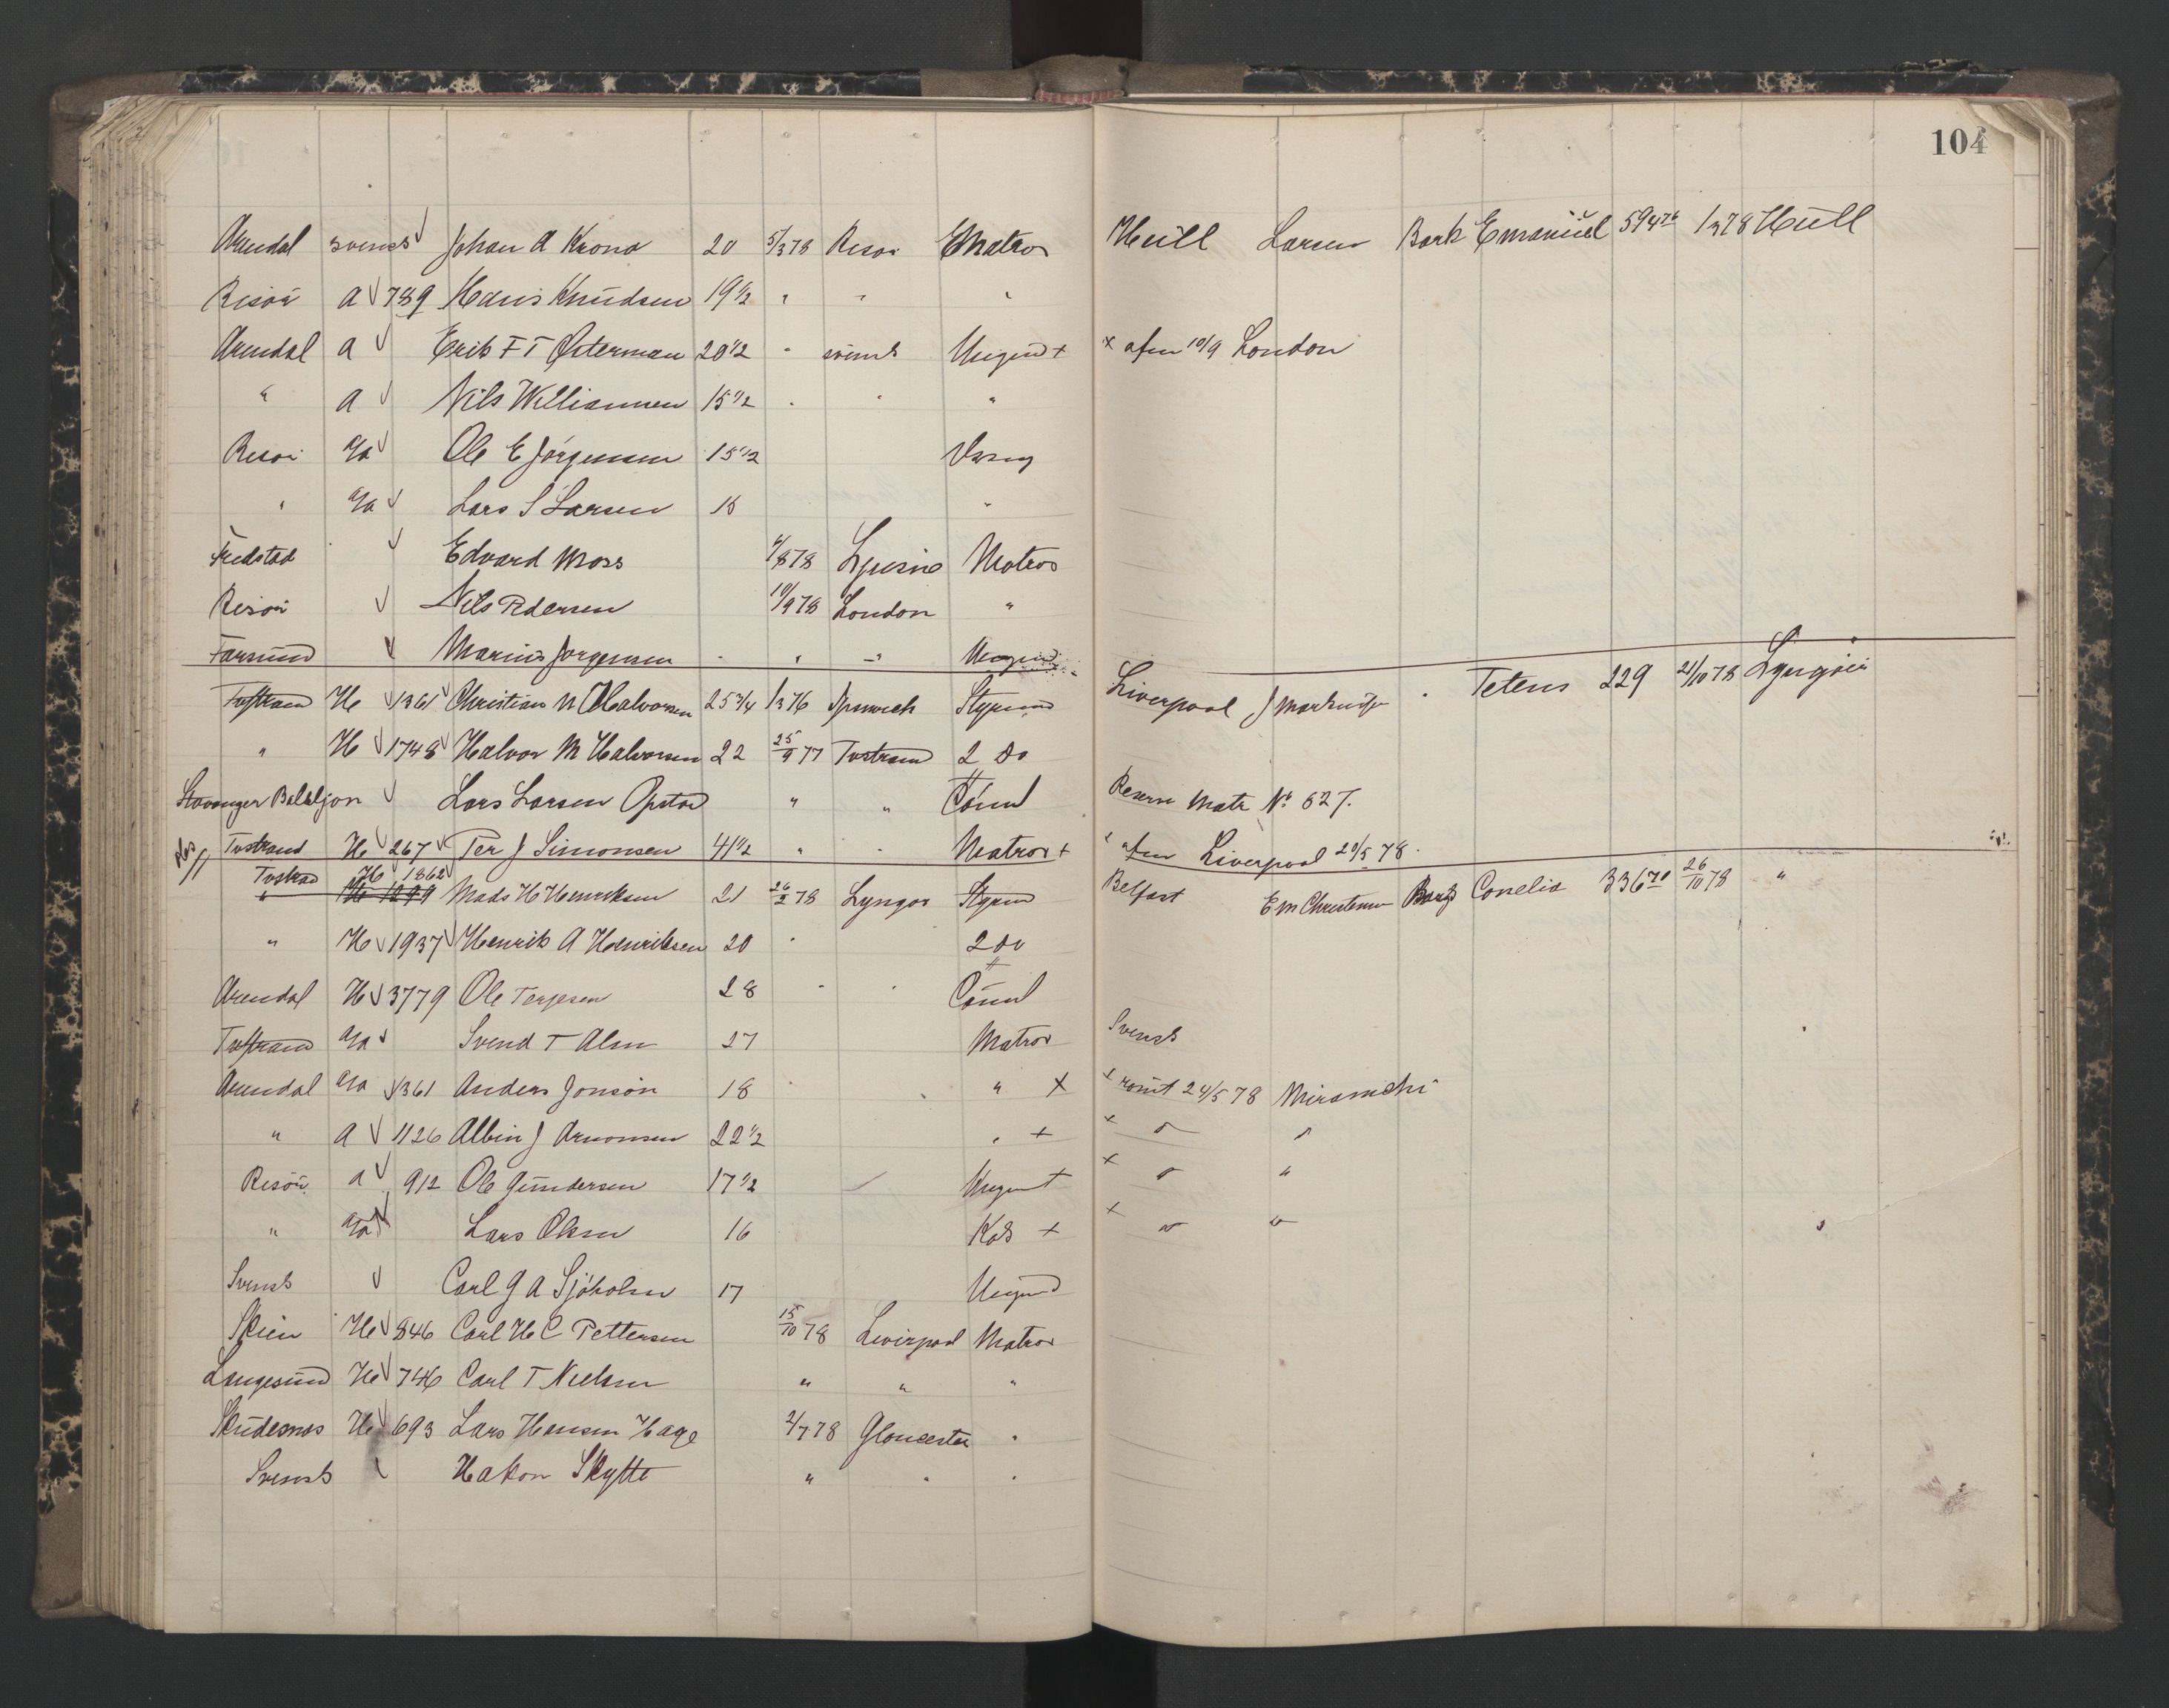 104
Arendal svensk Johan A Krona 20 5/3 78 Risør Ematros Hull Larsen Bark Emanuel 594 76 1/3 78 Hull
Risør a 789 Hans Knudsen 19 1/2 " " "
Arendal a Erik F T Østerman 20 1/2 " svensk Ungmd + x afm 10/9 London
" a Nils Williamsen 15 1/2 " " "
Risør a/a Ole E Jörgensen 15 1/2
" a/a Lars S Larsen 15 "
Fredstad Edvard Moss /8 78 Ljusne Matros
Risør Nils Pedersen 10/9 78 London "
Farsund Marius Jørgensen " " " Ungmd
Tvstrand H 1361 Christian N Halvorsen 25 3/4 1/3 76 Ipswich Styrmd Liverpool J " Tetens 229 21/10 78 Lyngøer
" H 1748 Halvor M Halvorsen 22 25/9 77 Tvstrand 2 do
Stavanger Lars Larsen Opstad " " Tömd Reserve Matr No 627.
Tvstrand H 267 Ter J Simonsen 41 1/2 " " Matros + x afm Liverpool 20/5 78.
Tvstrand H 1862
" H 1299 Mads H Henriksen 21 26/2 78 Lyngør Styrmd Belfast E M Christensen Bark Conelia 336 70 26/10 78 "
" H 1937 Henrik A Henriksen 20 " 2 do
Arendal H 3779 Ole Terjesen 28 " " Tömd
Tvstrand a/a Svend T Alm 27 Matros Svensk
Arendal a/a 1361 Anders Jonson 18 " x x römt 24/5 78 Miramchi
" a 1126 Albin J Aronsen 22 1/2 " + x " "
Risør a 912 Ole Gundersen 17 1/2 Ungmd + x " "
" a/a Lars Olsen 16 Kok + x " "
Svensk Carl G A Sjöholm 17 Ungmd
Skien H 846 Carl H C Pettersen 15/10 78 Liverpool Matros
Langesund H 746 Carl T Nielsen " " "
Skudesnes H 693 Lars Hansen Hage 2/7 78 Gloucester "
Svensk Hakon Skytte " " "